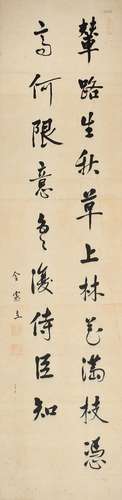 輦路生秋草上林花滿枝憑
高何限意無復侍臣知